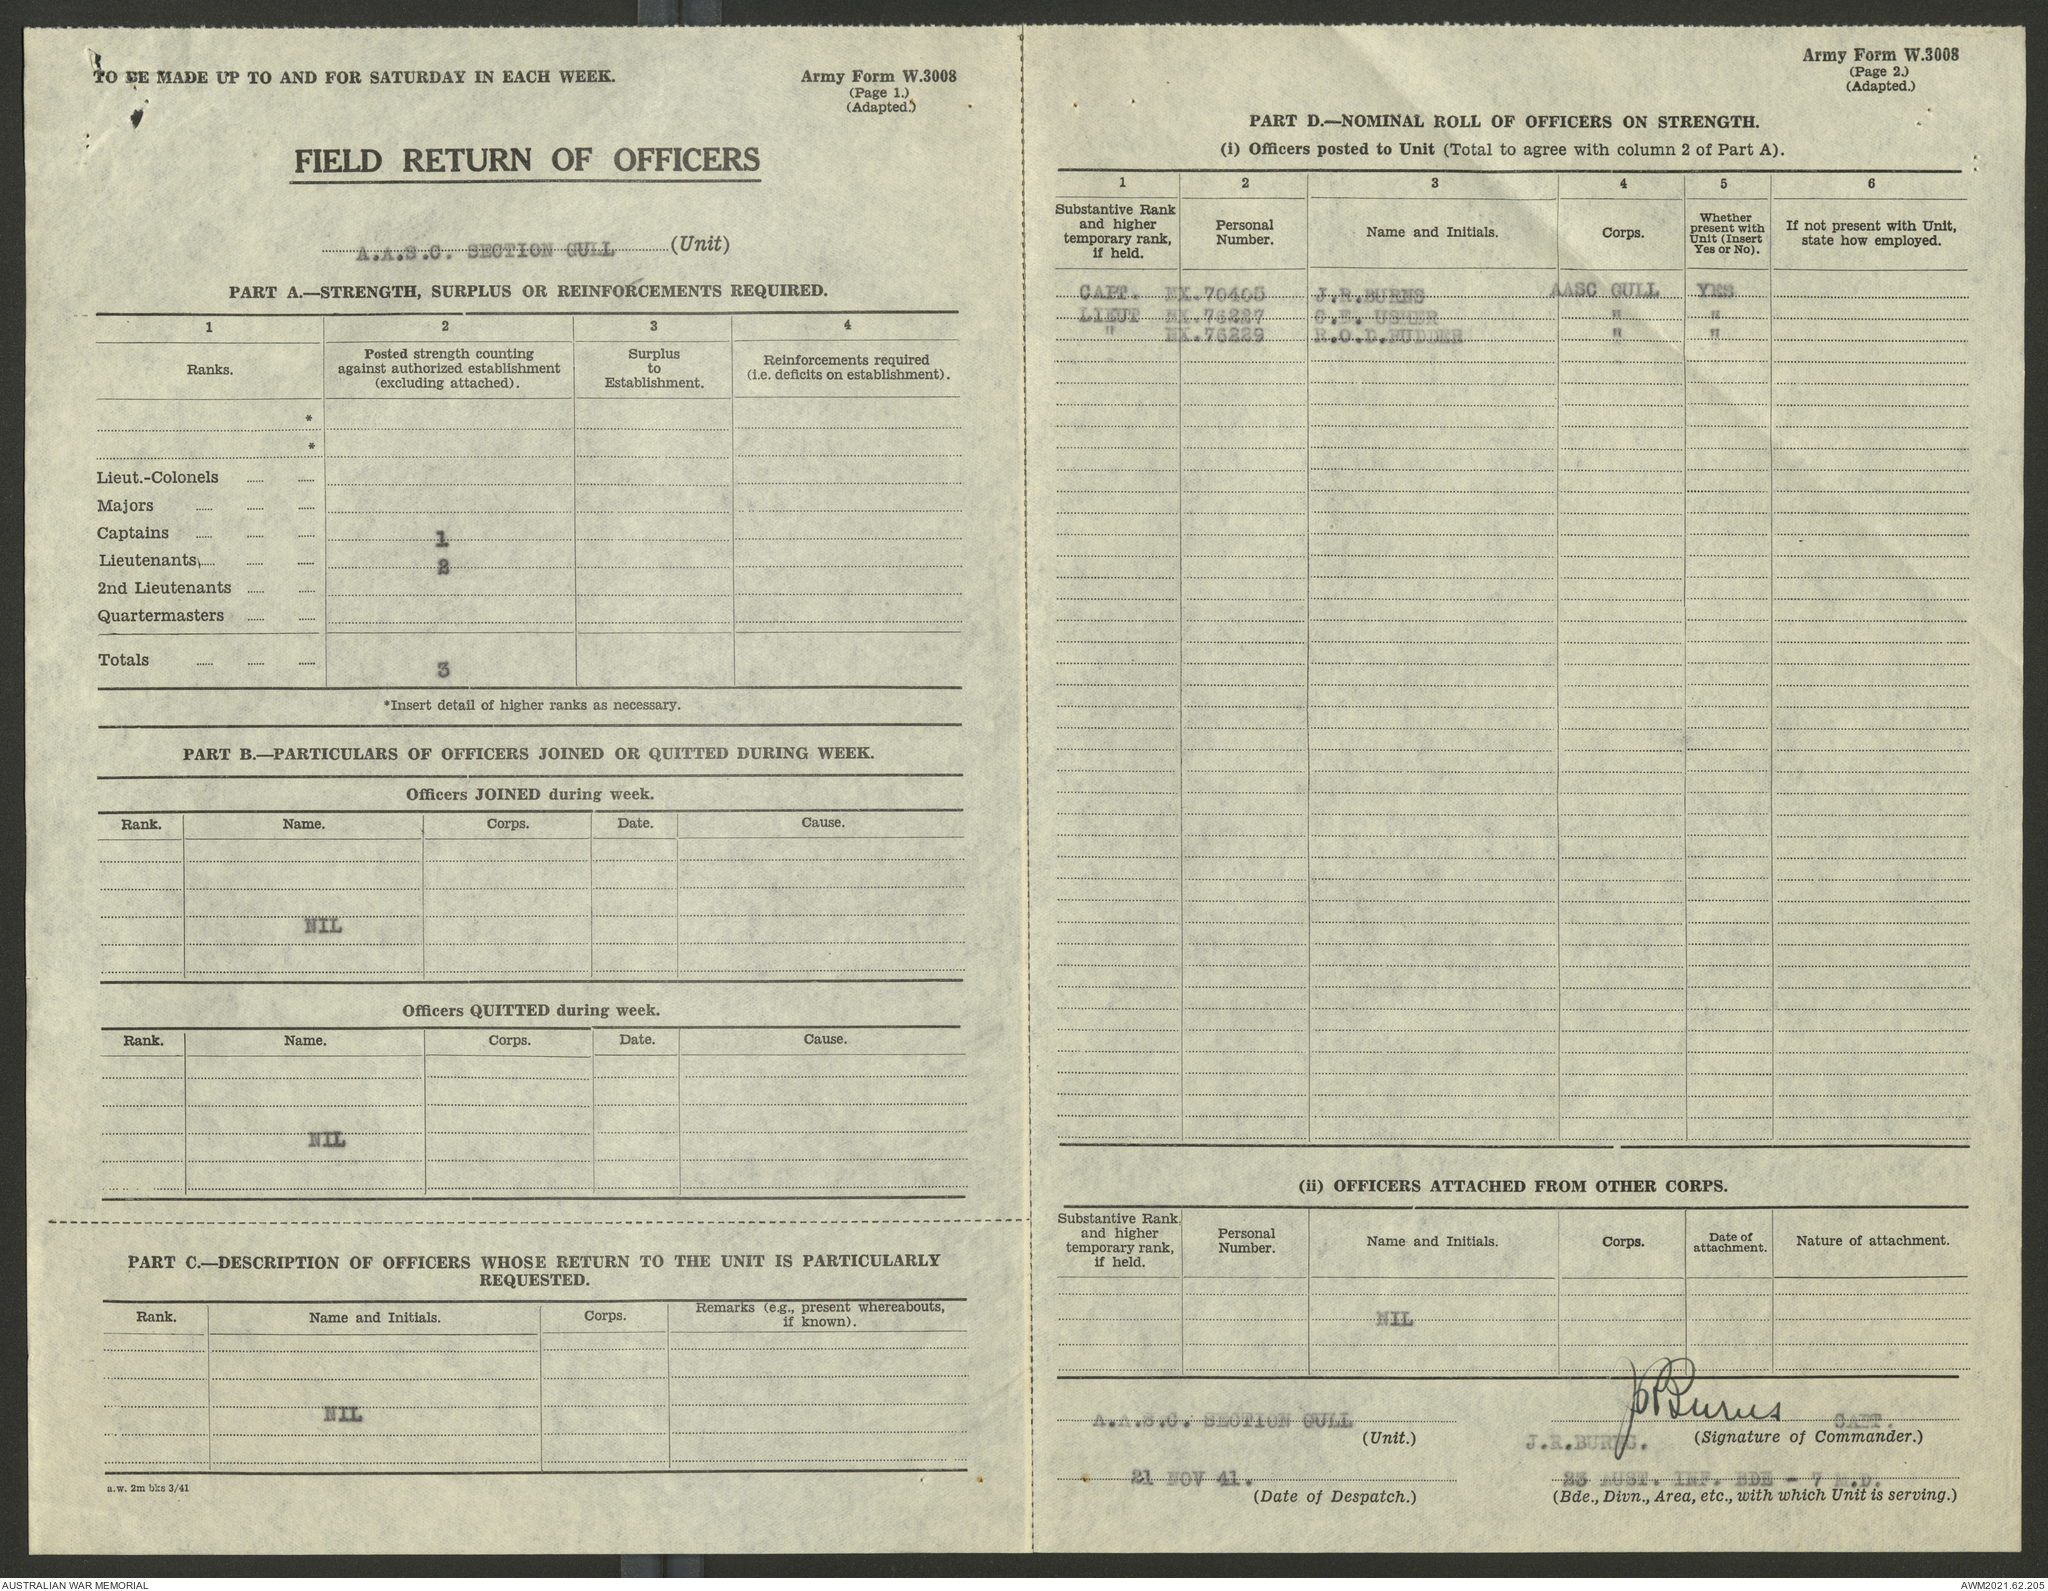 TO BE MADE UP TO AND FOR SATURDAY IN EACH WEEK.
Army Form W.3008
(Page 1.)
(Adapted.)
FIELD RETURN OF OFFICERS
A.A.S.C. SECTION GULL (Unit)
PART A.—STRENGTH, SURPLUS OR REINFORCEMENTS REQUIRED.
1 2 3 4
Ranks. Posted strength counting against authorized establishment (excluding attached). Surplus to Establishment. Reinforcements required (i.e. deficits on establishment).
*
*
Lieut.-Colonels ..... .....
Majors ..... ..... .....
Captains ..... ..... ..... 1
Lieutenants ..... ..... ..... 2
2nd Lieutenants ..... .....
Quartermasters ..... .....
Totals ..... ..... ..... 3
*Insert detail of higher ranks as necessary.
PART B.—PARTICULARS OF OFFICERS JOINED OR QUITTED DURING WEEK.
Officers JOINED during week.
Rank. Name. Corps. Date. Cause.
NIL
Officers QUITTED during week.
Rank. Name. Corps. Date. Cause.
NIL
PART C.—DESCRIPTION OF OFFICERS WHOSE RETURN TO THE UNIT IS PARTICULARLY
REQUESTED.
Rank. Name and Initials. Corps. Remarks (e.g., present whereabouts, if known).
NIL
a.w. 2m bks 3/41
Army Form W.3008
(Page 2.)
(Adapted.)
PART D.—NOMINAL ROLL OF OFFICERS ON STRENGTH.
(i) Officers posted to Unit (Total to agree with column 2 of Part A).
1 2 3 4 5 6
Substantive Rank and higher temporary rank, if held. Personal Number. Name and Initials. Corps. Whether present with Unit (Insert Yes or No). If not present with Unit, state how employed.
CAPT. NX.70405 J.R.BURNS AASC GULL YES
LIEUT NX.76227 C.E. USHER " "
" NX.76229 R.O.D. " "
(ii) OFFICERS ATTACHED FROM OTHER CORPS.
Substantive Rank and higher temporary rank, if held. Personal Number. Name and Initials. Corps. Date of attachment. Nature of attachment.
NIL
A.A.S.C. SECTION GULL
(Unit.)
JRBurns CAPT.
J.R.BURNS. (Signature of Commander.)
21 NOV 41.
(Date of Despatch.)
23 AUST. INF. BDE - 7 M.D.
(Bde., Divn., Area, etc., with which Unit is serving.)
AUSTRALIAN WAR MEMORIAL
AWM2021.62.205